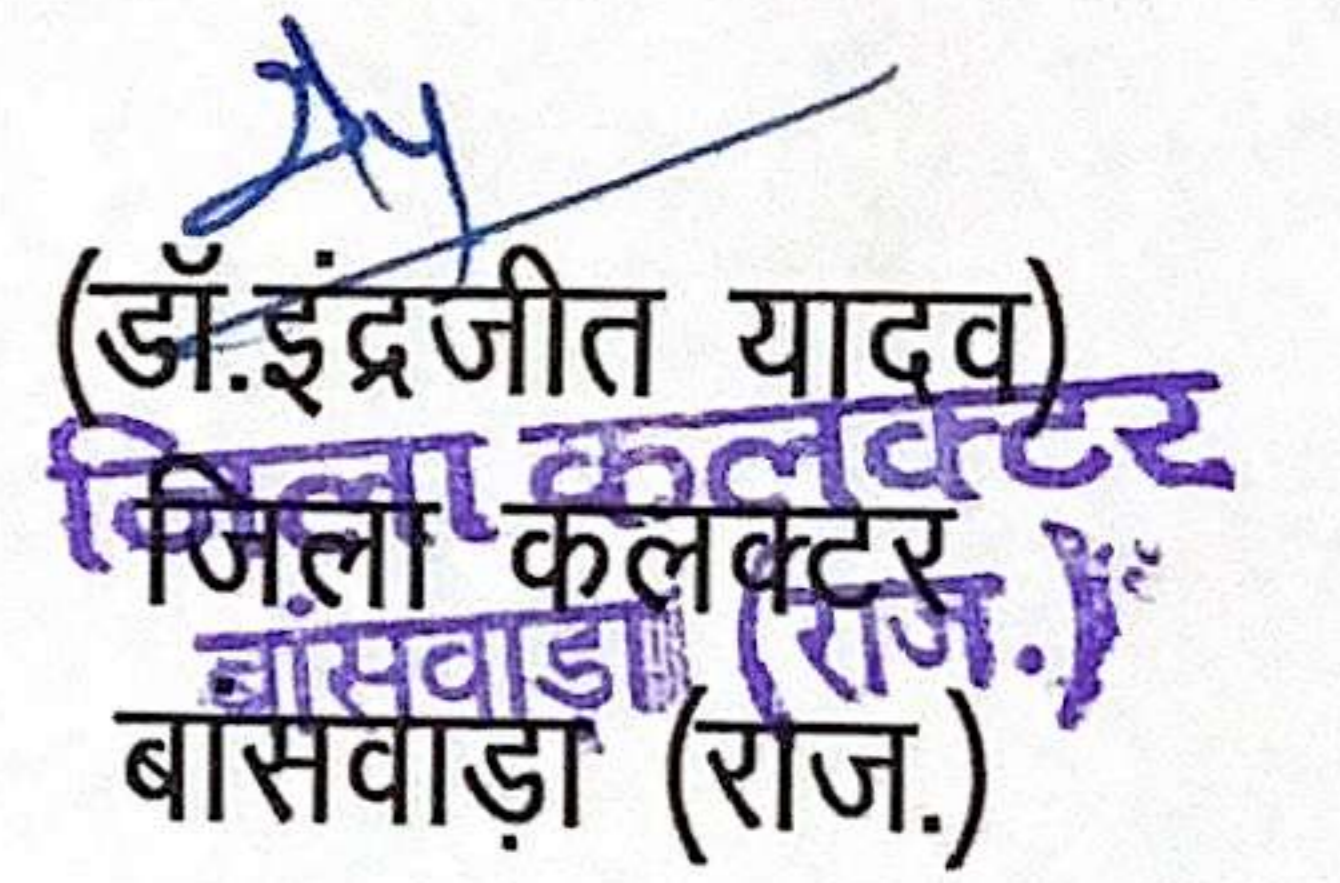 (डॉ.इंद्रजीत यादव)
जिला कलक्टर
जिला कलक्टर
बांसवाडा (राज.)
बासवाड़ा (राज.)